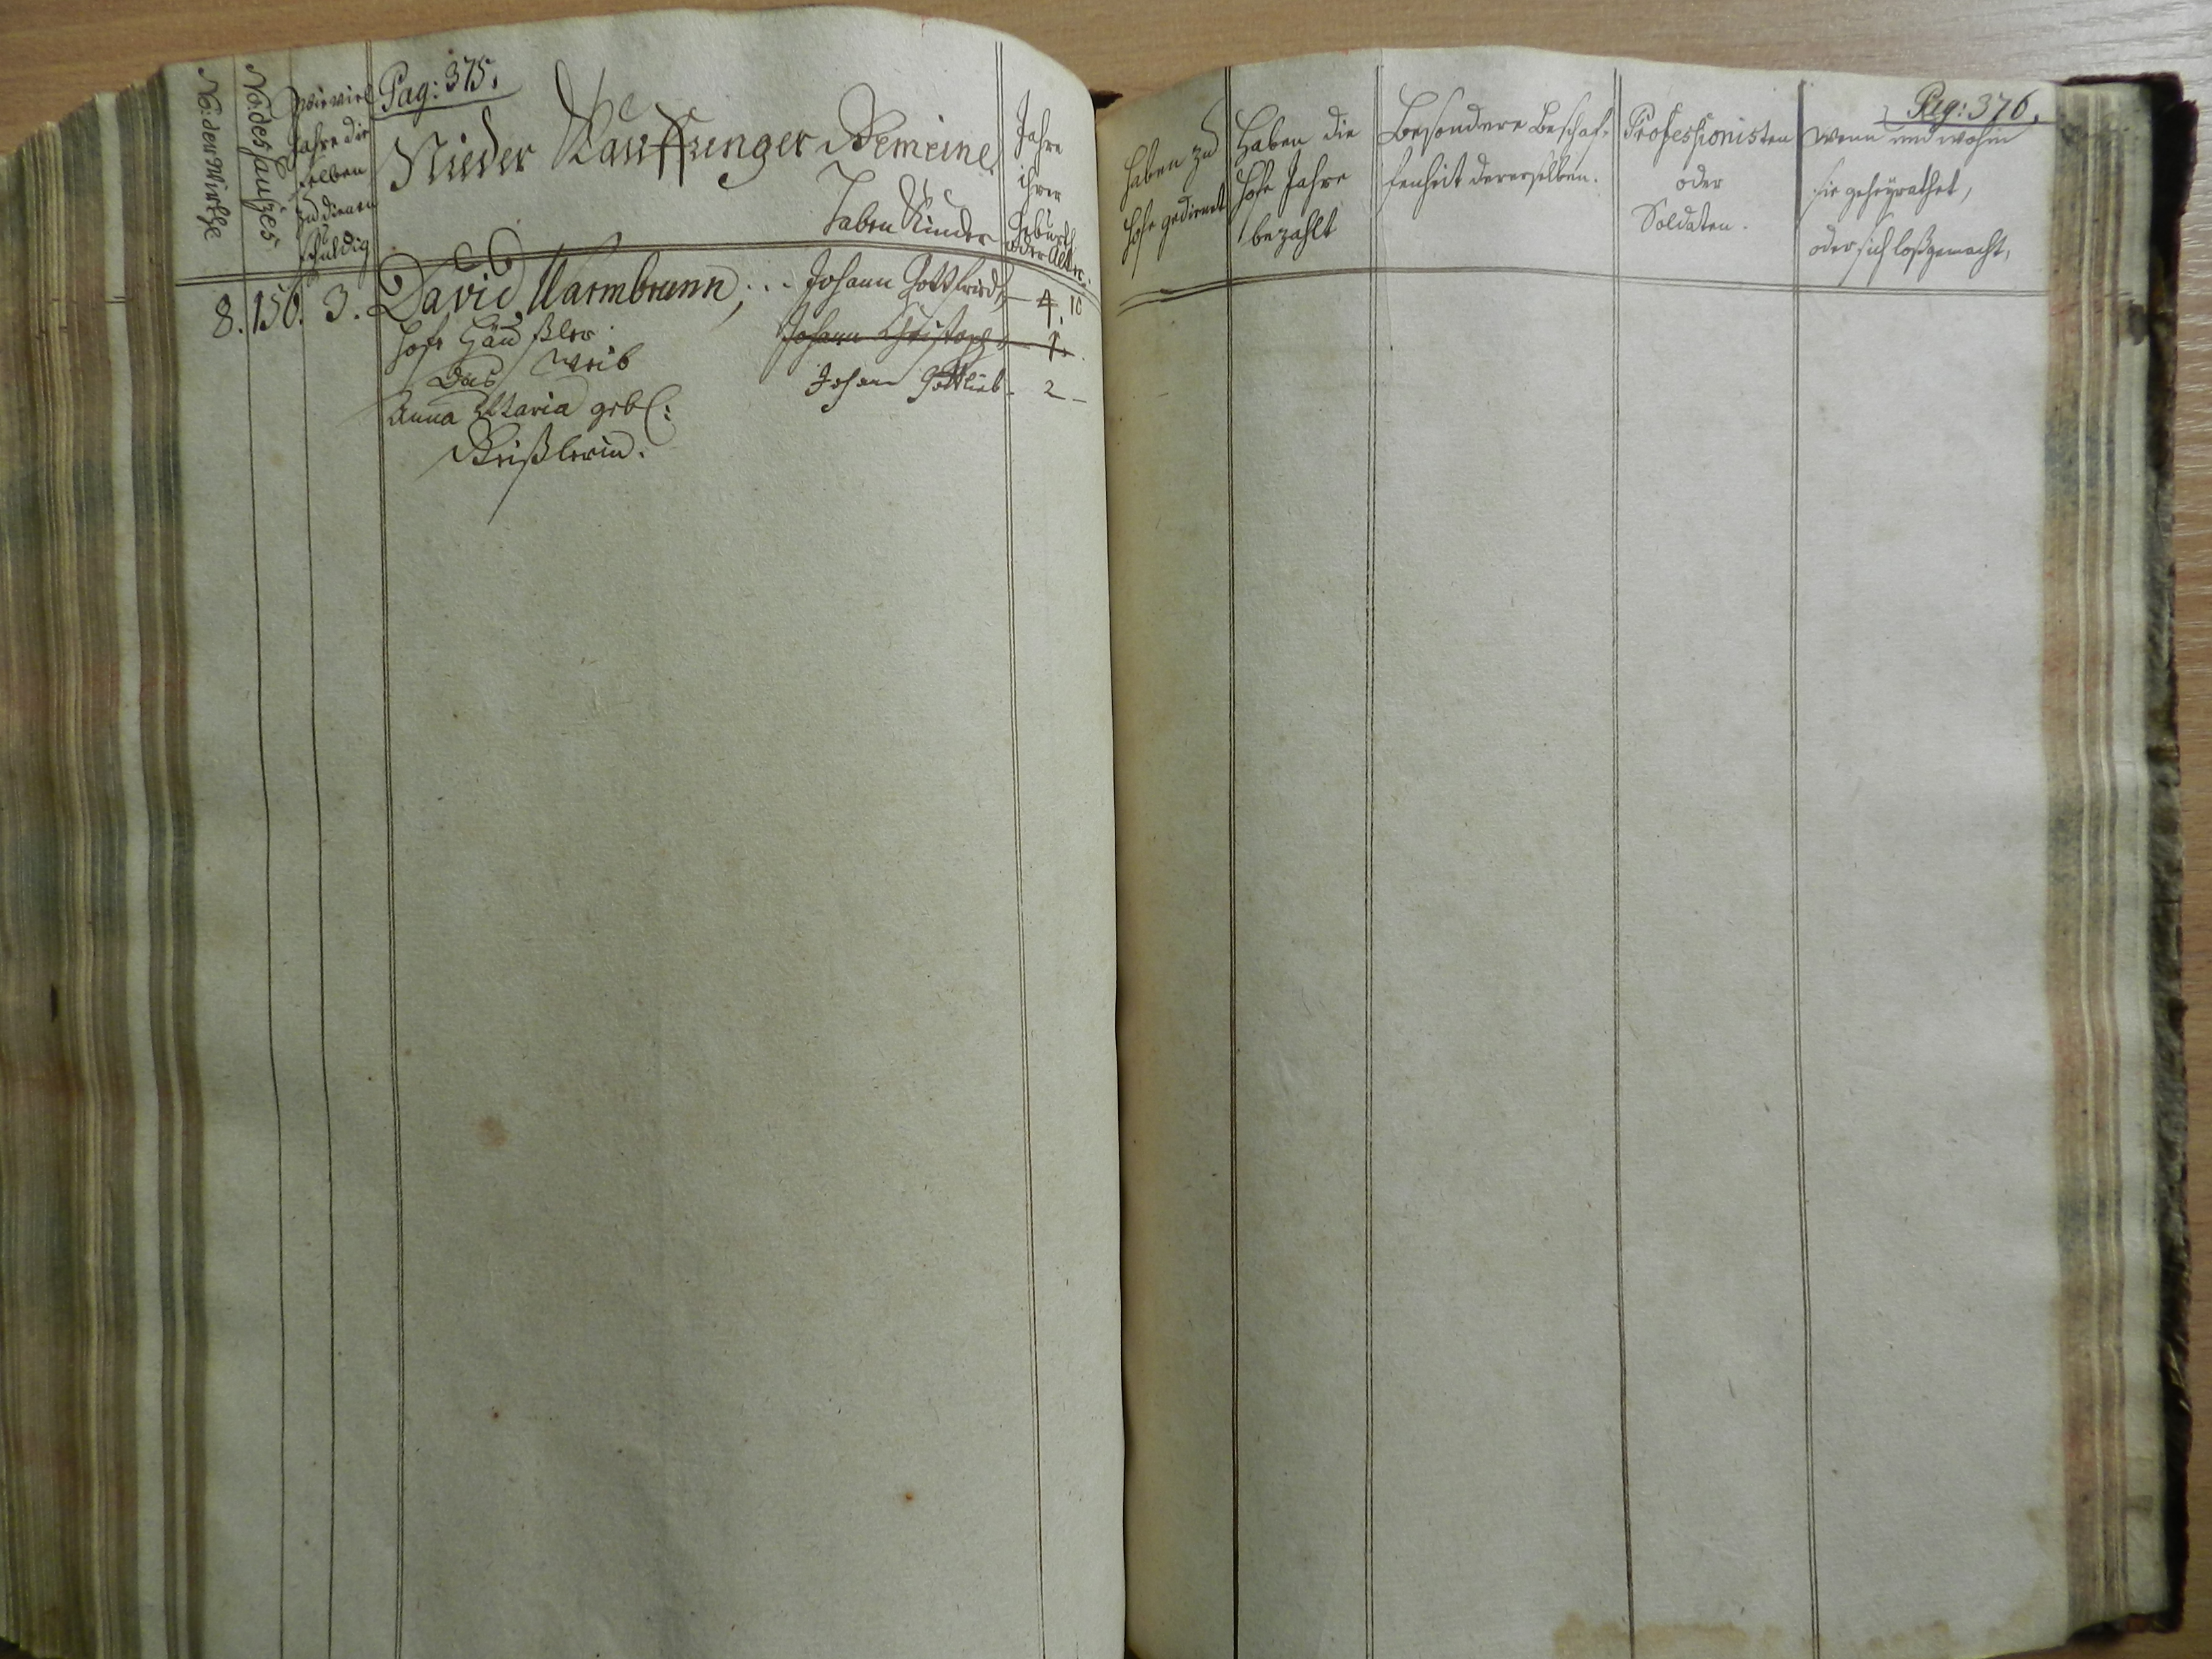 Pag: 375.
No: der Wirthe
No: des Hauses
Wie viel
Jahre die
selben
zu dienen
schuldig
Nieder Kauffunger Gemeine
Haben Kinder
Jahre
ihrer
Geburth
oder Alter.
8. 150. 3. David Warmbrunn, . . . Johann Gottfried, — 4. 10
Hofe Häußler. Johann Christoph — 1.
Das Weib Johann Gottlieb - 2 -
Anna Maria geb:
Pag: 376.
Haben zu
Hofe gedient
Haben die
Hofe Jahre
bezahlt
Besondere Beschaf-
fenheit dererselben.
Professionisten
oder
Soldaten.
Wenn und wohin
sie geheyrathet,
oder sich loßgemacht,